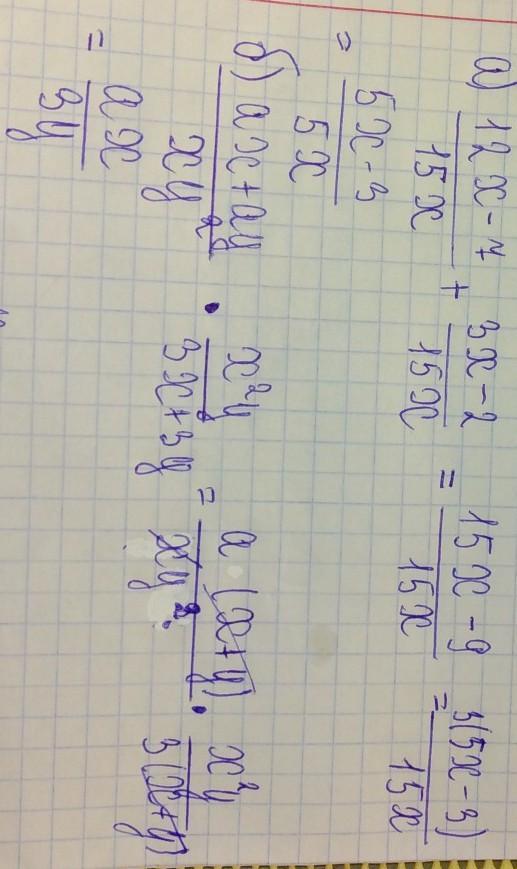 а) (12x-7)/(15x) + (3x-2)/(15x) = (15x-9)/(15x) = 3(5x-3)/(15x)
= (5x-3)/(5x)
б) (ax+ay)/(xy²) · (x²y)/(3x+3y) = a(x+y)/(xy²) · (x²y)/(3(x+y))
= (ax)/(3y)